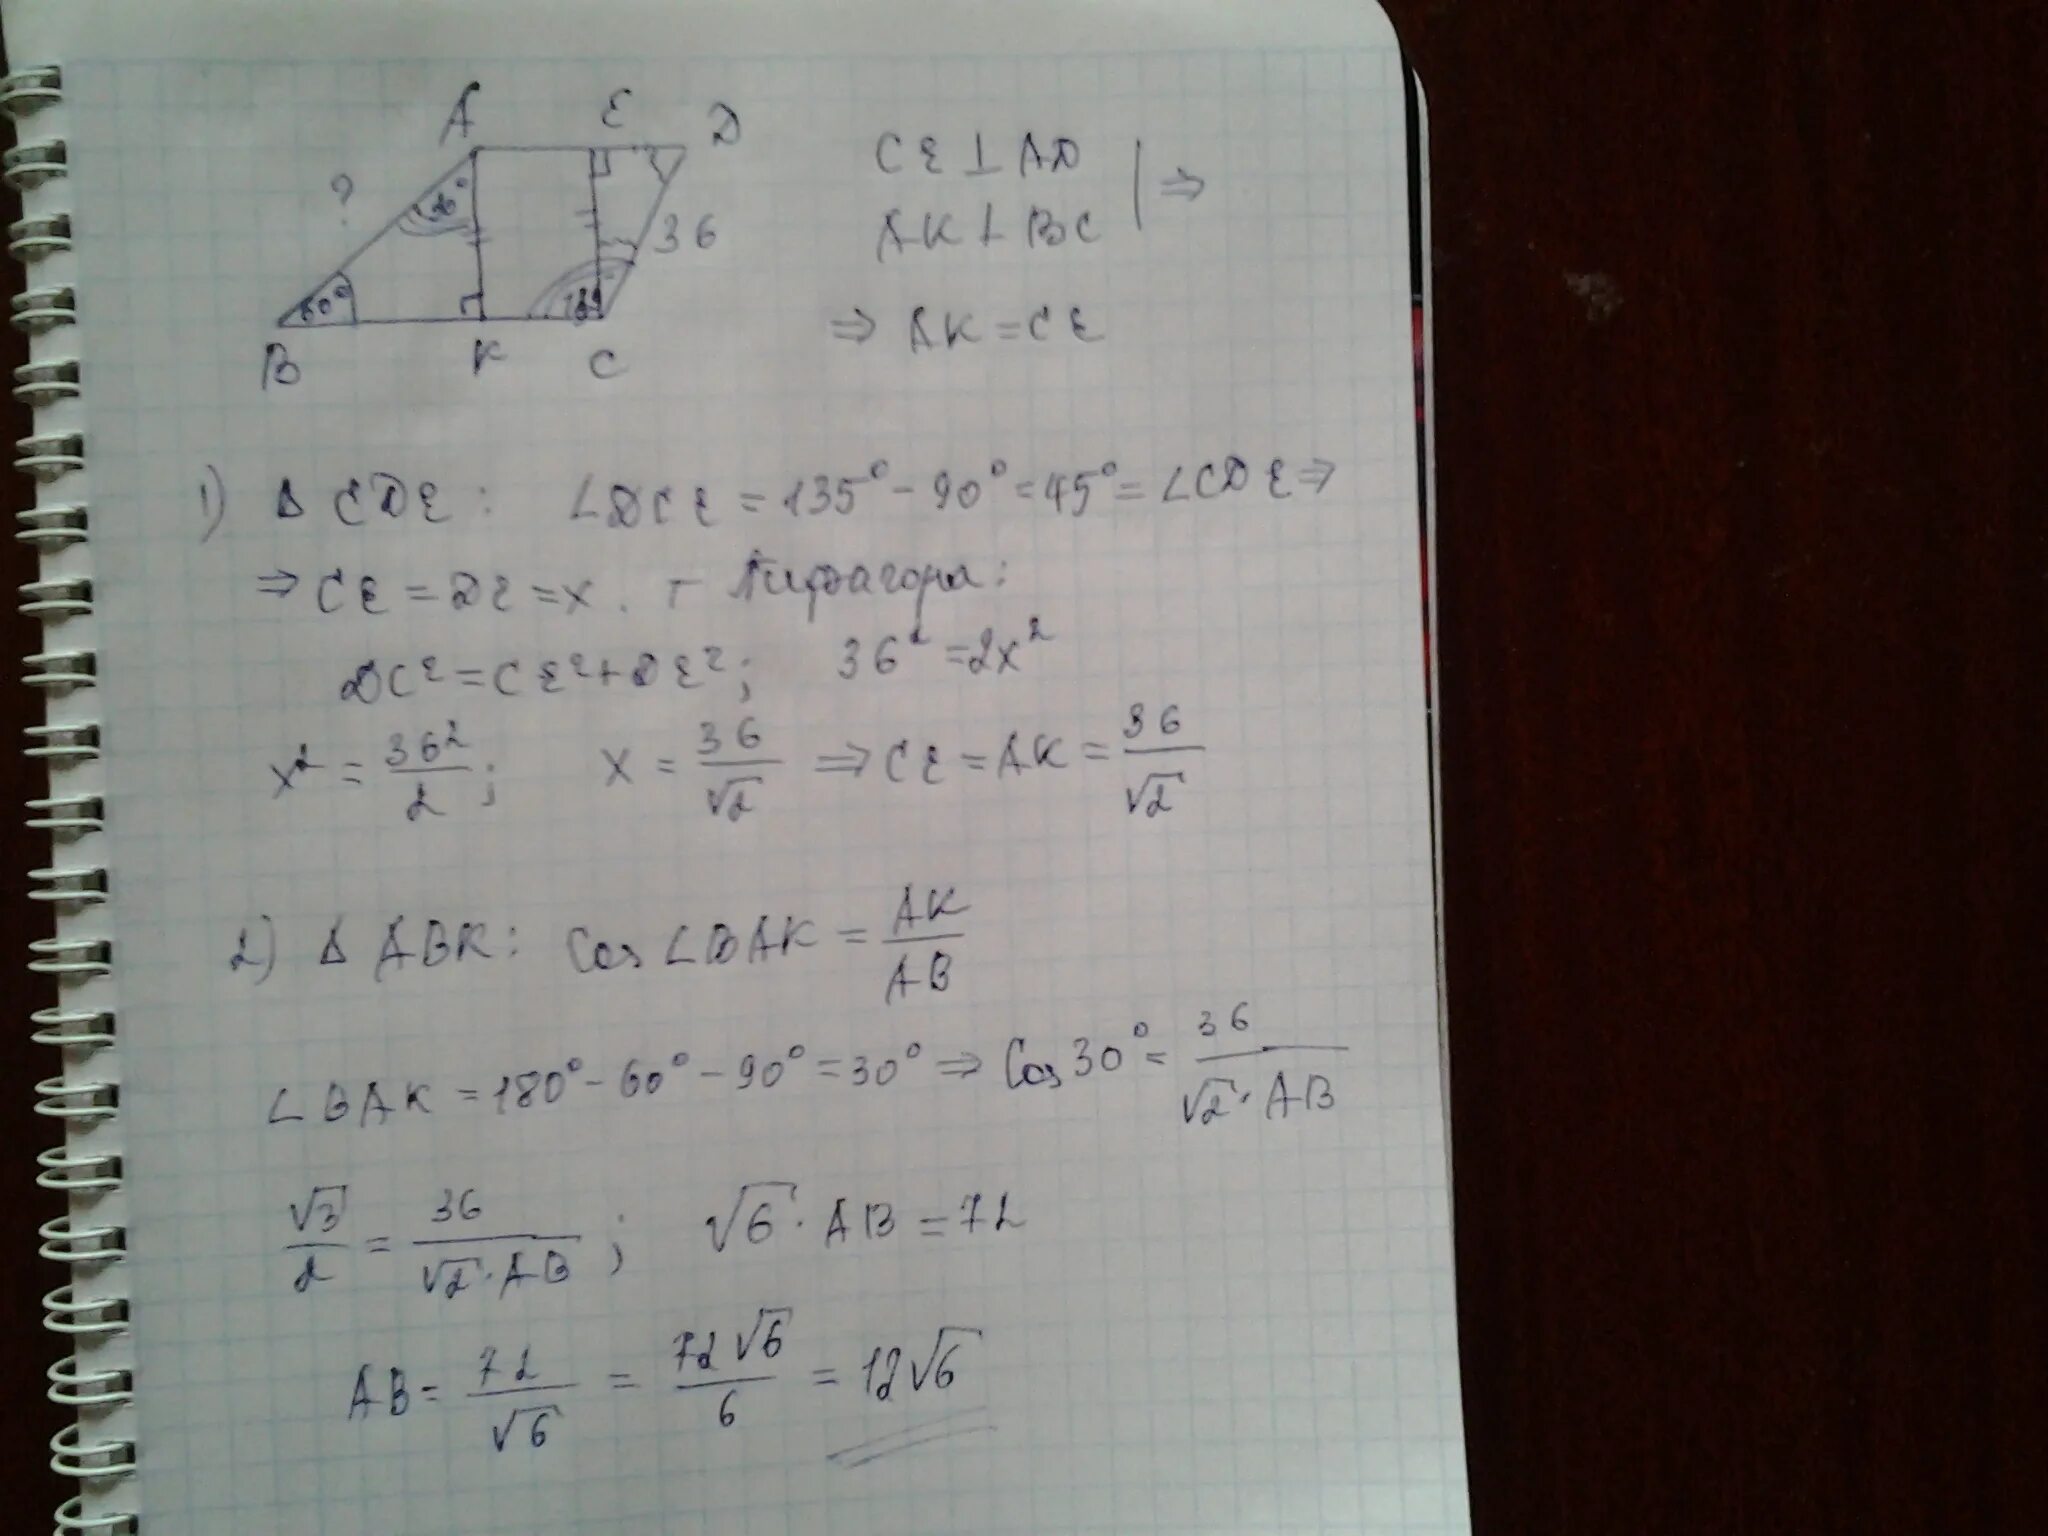 A E D
CE ⊥ AD
?
30°
36
AK ⊥ BC
⇒
60°
135°
⇒ AK = CE
B K C
1) Δ CDE : ∠DCE = 135° - 90° = 45° = ∠CDE ⇒
⇒ CE = DE = x . т Пифагора:
DC² = CE² + DE² ; 36² = 2x²
x² = 36²/2 ; x = 36/√2 ⇒ CE = AK = 36/√2
2) Δ ABK : Cos ∠BAK = AK/AB
∠BAK = 180° - 60° - 90° = 30° ⇒ Cos 30° = 36/(√2 · AB)
√3/2 = 36/(√2 · AB) ; √6 · AB = 72
AB = 72/√6 = 72√6/6 = 12√6